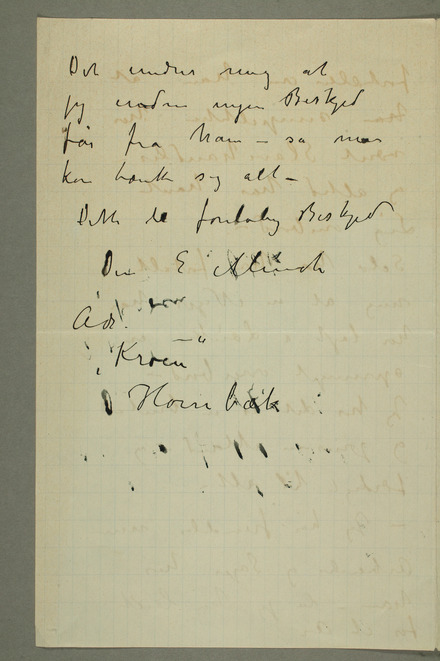 Det undrer mig at
jeg endnu ingen Beskjed
får fra ham – så man
kan tænke sig alt –
Dette til foreløbig Beskjed
Din E Munch
Adr.
„Kroen"
Hornbæk